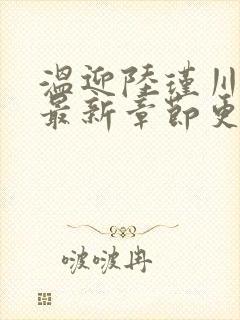 温迎陆瑾川
最新章节更
啵啵冉